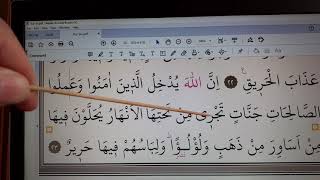 عَذَابَ الْحَرِيقِ ﴿٢٢﴾ اِنَّ اللّٰهَ يُدْخِلُ الَّذِينَ اٰمَنُوا وَعَمِلُوا
الصَّالِحَاتِ جَنَّاتٍ تَجْرِى مِنْ تَحْتِهَا الْاَنْهَارُ يُحَلَّوْنَ فِيهَا
مِنْ اَسَاوِرَ مِنْ ذَهَبٍ وَلُؤْلُؤًا وَلِبَاسُهُمْ فِيهَا حَرِيرٌ ﴿٢٣﴾